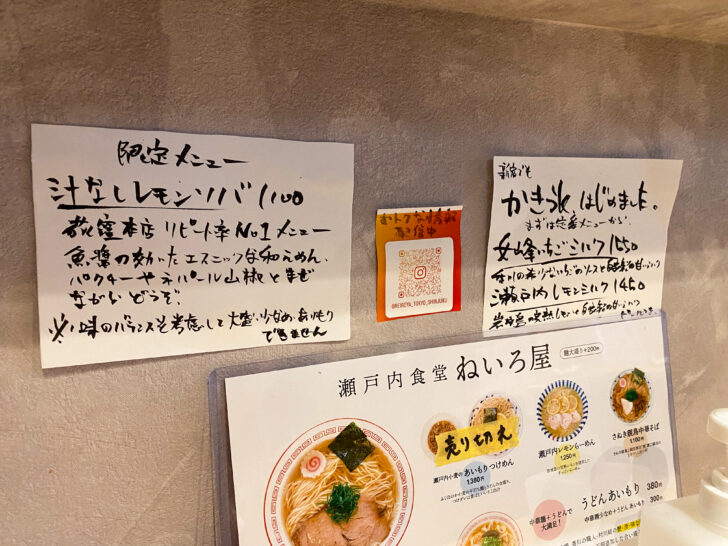 限定メニュー
汁なしレモンソバ 1,100
荻窪本店 リピート率No.1メニュー
魚醤の効いたエスニックな和えめん。
パクチーやネパール山椒とまぜ
ながらどうぞ。
※味のバランスを考慮して大盛、少なめ、あいもり
できません
おトクな情報
配信中
@NEIROYA_TOKYO_SHINJUKU
新宿でも
かき氷、はじめました。
まずは定番メニューから。
女峰いちごミルク 1,550
瀬戸内レモンミルク 1,450
瀬戸内食堂 ねいろ屋
麺大盛り+200円
売り切れ
瀬戸内小麦のあいもりつけめん
1,380円
瀬戸内レモンらーめん
1,250円
さぬき親鳥中華そば
1,160円
中華麺+うどんで
大満足!
うどんあいもり 380円
中華麺少なめ+うどんあいもり 300円